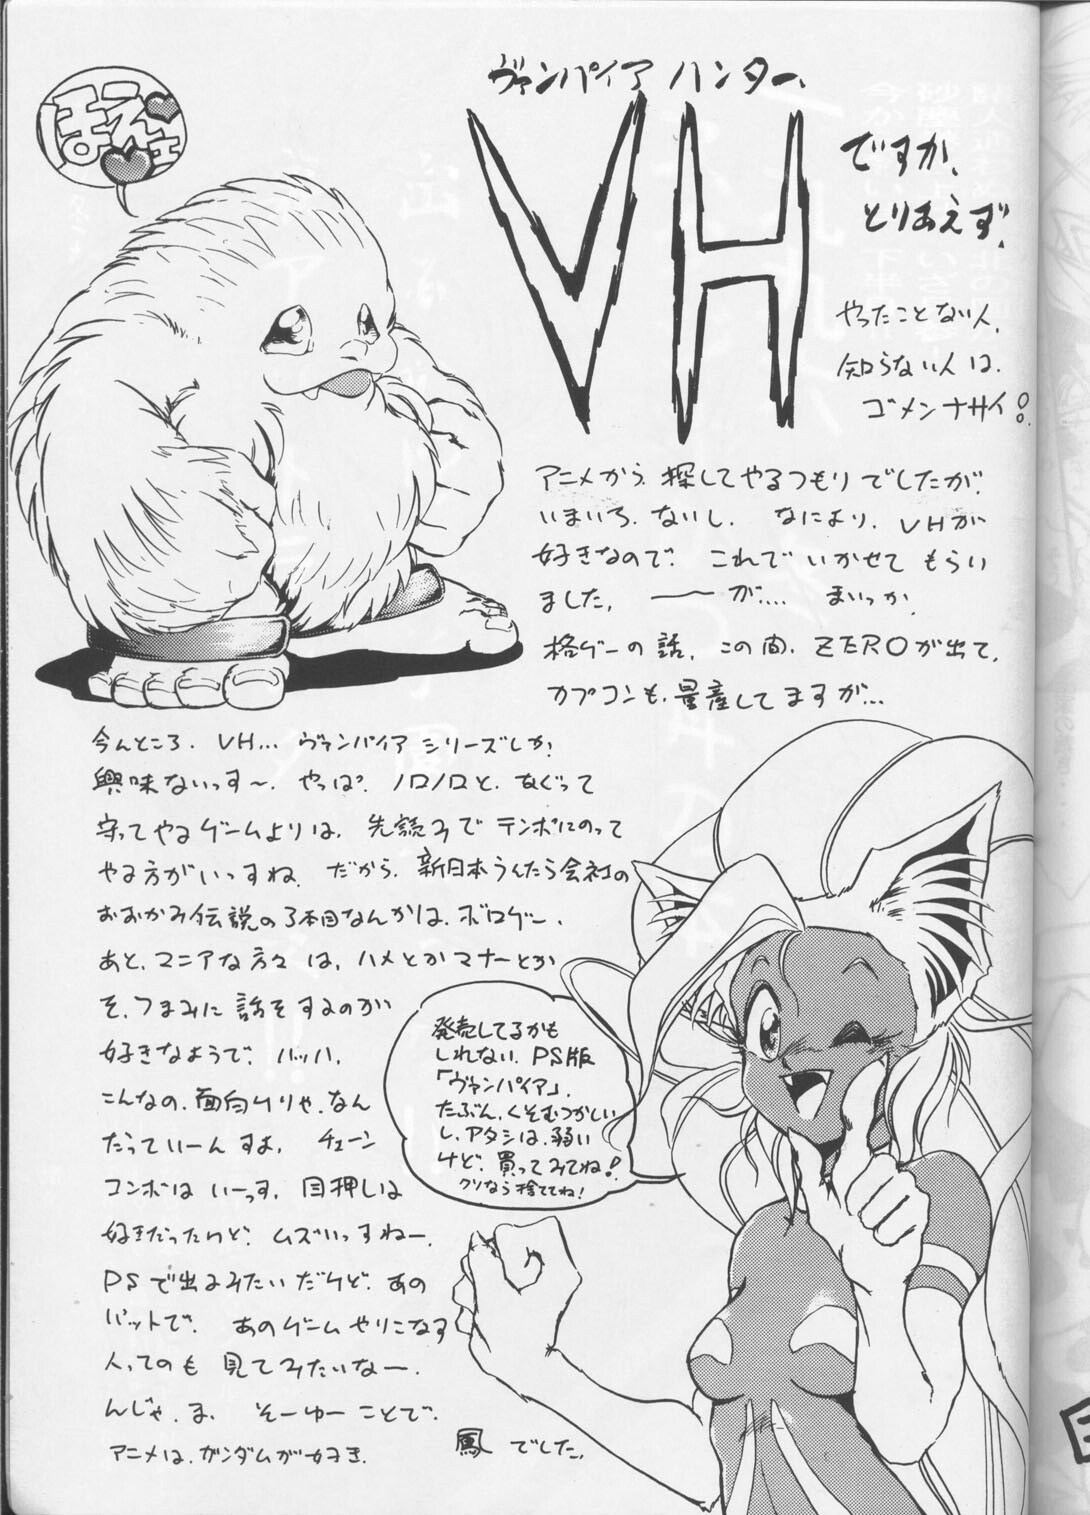 ほえェ
ヴァンパイア ハンター、
VH
ですか、
とりあえず、
やったことない人、
知らない人は、
ゴメンナサイ!
アニメから、探してやるつもりでしたが、
いまいち、ないし、なにより、VHが
好きなので、これでいかせてもらい
ました、――が…、まいっか、
格ゲーの話、この間、ZEROが出て、
カプコンも、量産してますが…
今んところ、VH…ヴァンパイアシリーズしか、
興味ないっす〜、やっぱ、ノロノロと、なぐって
守ってやるゲームよりは、先読みでテンポにのって
やる方がいっすね、だから、新日本うんたら会社の
おおかみ伝説の3本目なんかは、ボロゲー、
あと、マニアな方々は、ハメとかマナーとか
を、つまみに話をするのが
好きなようで、バッハ、
こんなの、面白けりゃ、なん
だっていーんすよ、チェーン
コンボはいーっす、目押しは
好きだったけど、ムズいっすねー、
PSで出るみたいだけど、あの
パットで、あのゲームやりこなす
人ってのも見てみたいなー、
んじゃ、ま、そーゆーことで、
アニメは、ガンダムが好き、
鳳でした、
発売してるかも
しれない、PS版
「ヴァンパイア」、
たぶん、くそむつかしい
し、アタシは、弱い
けど、買ってみてね!
クソなら捨ててね!